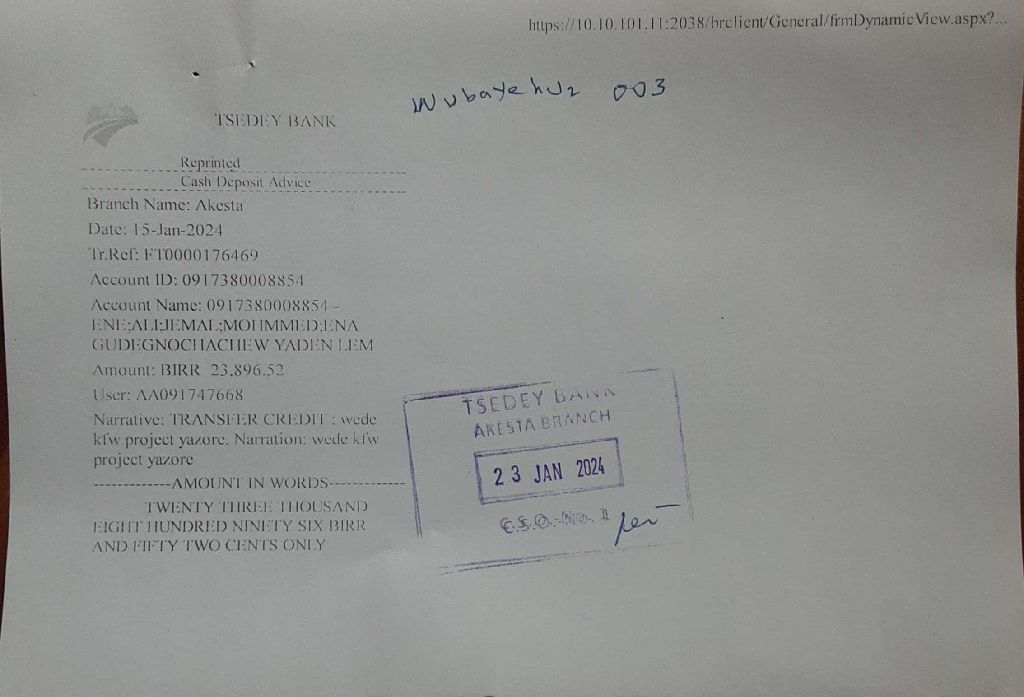 https://10.10.101.11:2038/brclient/General/frmDynamicView.aspx?...
Wubayehu2 003
TSEDEY BANK
Reprinted
Cash Deposit Advice
Branch Name: Akesta
Date: 15-Jan-2024
Tr.Ref: FT0000176469
Account ID: 0917380008854
Account Name: 0917380008854 -
ENE;ALI;JEMAL;MOHMMED;ENA
GUDEGNOCHACHEW YADEN LEM
Amount: BIRR 23,896.52
User: AA091747668
Narrative: TRANSFER CREDIT : wede
kfw project yazore. Narration: wede kfw
project yazore
-------------AMOUNT IN WORDS-------------
TWENTY THREE THOUSAND
EIGHT HUNDRED NINETY SIX BIRR
AND FIFTY TWO CENTS ONLY
TSEDEY BANK
AKESTA BRANCH
23 JAN 2024
C.S.O. No. 1